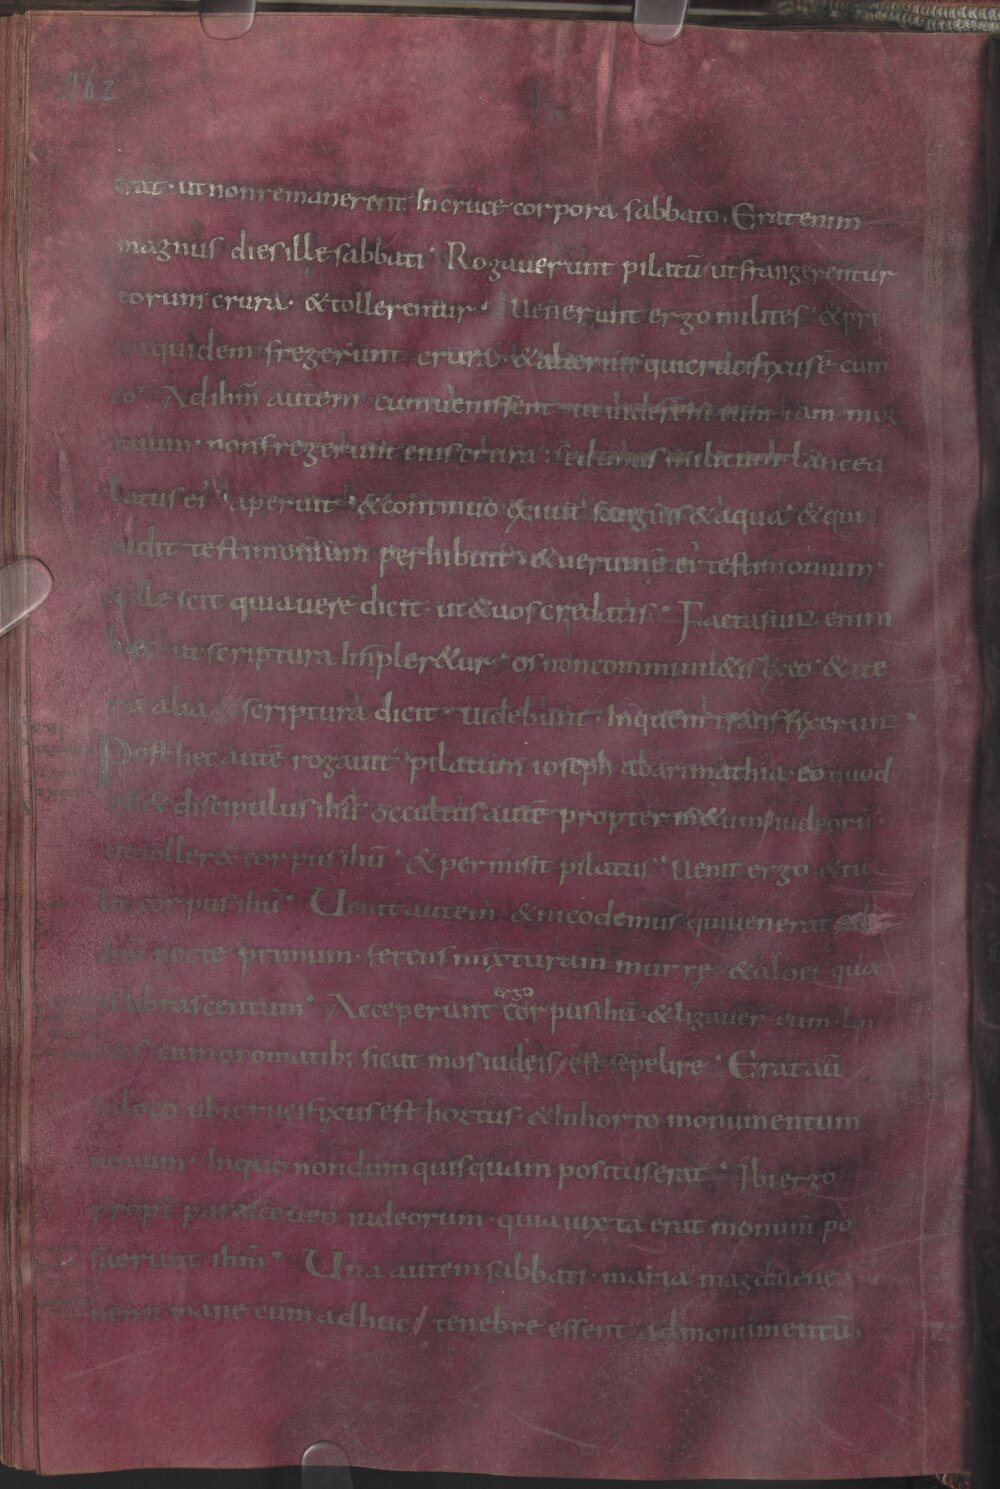 162
erat · ut non remanerent In cruce corpora sabbato. Erat enim
magnus dies ille sabbati · Rogaverunt pilatū ut frangerentur
eorum crura · & tollerentur · Uenerunt ergo milites & pri
quidem fregerunt crura & alterius qui crucifixus ē cum
eo · Ad ihm̄ autem cum uenissent ut uiderent eum iam mor
tuum · non fregerunt eius crura · sed unus militum lancea
latus ei' aperuit · & continuo exiuit sanguis & aqua · & qui
uidit testimonium perhibuit · & uerum ē ei' testimonium ·
& ille scit quia uere dicit · ut & uos credatis · Facta sunt enim
haec ut scriptura Impler&ur · os non comminu&is ex eo · & ite
rū alia scriptura dicit · uidebunt · In quem transfixerunt ·
Post hęc autē rogauit pilatum ioseph ab arimathia · eo quod
ess& discipulus ihū occultus autē propter m&um iudeorū ·
ut toller& corpus ihū · & permisit pilatus · Uenit ergo & tu
lit corpus ihū · Uenit autem & nicodemus qui uenerat ad
ihm̄ nocte primum · ferens mixturam murrę · & aloes quasi
libras centum · Acceperunt ergo corpus ihū & ligauer̄ eum lin
teis cum aromatib; sicut mos iudęis est sepelire · Erat aū
In loco ubi crucifixus est hortus · & In horto monumentum
nouum · In quo nondum quisquam positus erat · Ibi ergo
propt̄ parasceuen iudeorum · quia iuxta erat monum̄ po
suerunt ihm̄ · Una autem sabbati · maria magdalene
uenit mane cum adhuc tenebre essent ad monumentū ·